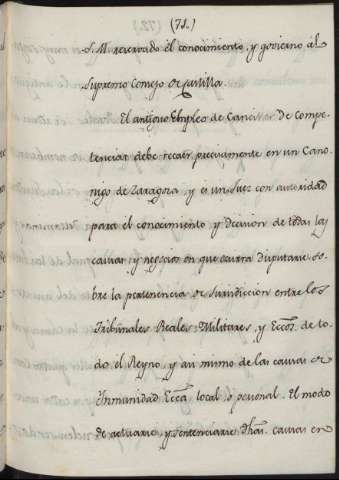 (71.)
S. M. reservado el conocimiento, y govierno al
Supremo Consejo de Castilla.
El antiguo Empleo de Canciller de Compe-
tencias debe recaer precisamente en un Cano-
nigo de Zaragoza, y es un Juez con autoridad
para el conocimiento, y Decision de todas las
causas, y negocios en que ocurra disputarse so-
bre la pertenencia de Jurisdiccion entre los
Tribunales Reales, Militares, y Eccos. de to-
do el Reyno, y asi mismo de las causas de
Ynmunidad Ecca. local, o personal. El modo
de actuarse, y sentenciarse dhas. causas en